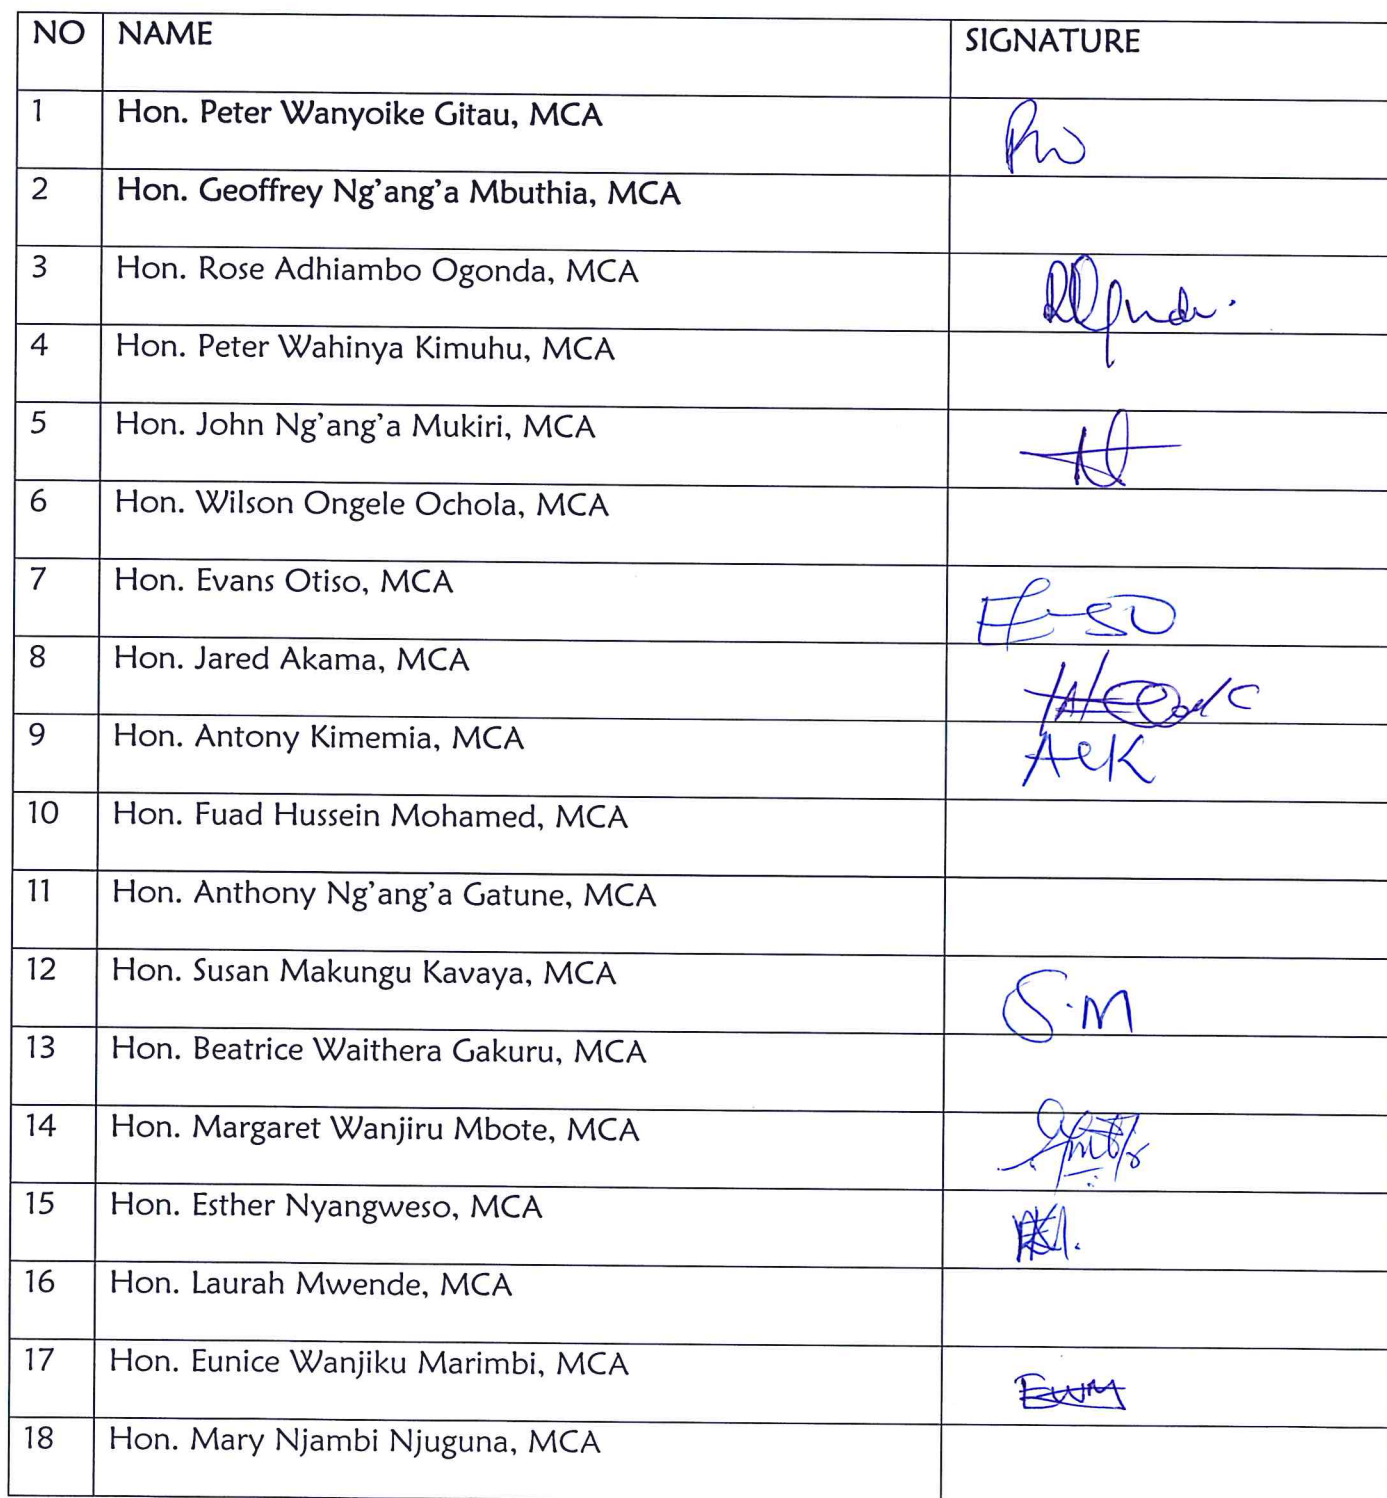 NO NAME SIGNATURE
1 Hon. Peter Wanyoike Gitau, MCA
2 Hon. Geoffrey Ng'ang'a Mbuthia, MCA
3 Hon. Rose Adhiambo Ogonda, MCA
4 Hon. Peter Wahinya Kimuhu, MCA
5 Hon. John Ng'ang'a Mukiri, MCA
6 Hon. Wilson Ongele Ochola, MCA
7 Hon. Evans Otiso, MCA
8 Hon. Jared Akama, MCA
9 Hon. Antony Kimemia, MCA
10 Hon. Fuad Hussein Mohamed, MCA
11 Hon. Anthony Ng'ang'a Gatune, MCA
12 Hon. Susan Makungu Kavaya, MCA S.M
13 Hon. Beatrice Waithera Gakuru, MCA
14 Hon. Margaret Wanjiru Mbote, MCA
15 Hon. Esther Nyangweso, MCA
16 Hon. Laurah Mwende, MCA
17 Hon. Eunice Wanjiku Marimbi, MCA EWM
18 Hon. Mary Njambi Njuguna, MCA